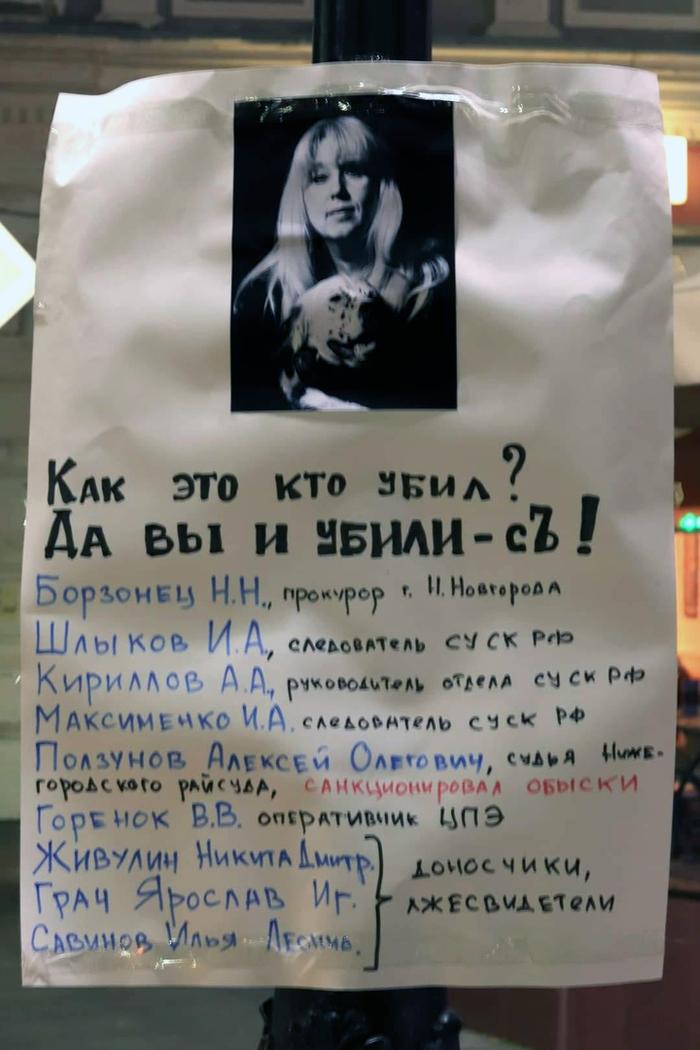 Как это кто убил?
Да вы и убили-съ!
Борзонец Н.Н., прокурор г. Н.Новгорода
Шлыков И.А., следователь СУ СК РФ
Кириллов А.А., руководитель отдела СУ СК РФ
Максименко И.А. следователь СУ СК РФ
Ползунов Алексей Олегович, судья Ниже-
городского райсуда, санкционировал обыски
Горенок В.В. оперативник ЦПЭ
Живулин Никита Дмитр.
Грач Ярослав Иг.
Савинов Илья
доносчики,
лжесвидетели